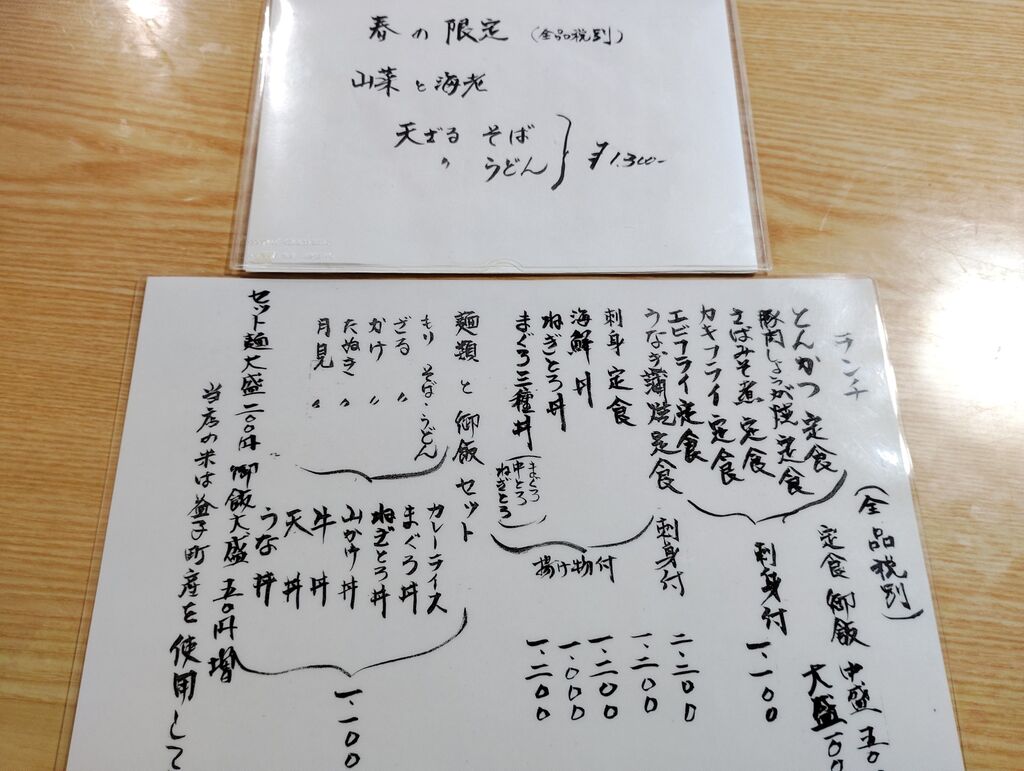 春の限定 (全品税別)
山菜と海老
天ざる そば
〃 うどん ¥1.300-
ランチ (全品税別)
定食御飯 中盛 五〇
大盛 一〇〇
とんかつ定食
豚肉しょうが焼定食
さばみそ煮定食
カキフライ定食
エビフライ定食
刺身付 一.一〇〇
うなぎ蒲焼定食 刺身付 二.二〇〇
刺身定食 一.二〇〇
海鮮丼 一.二〇〇
ねぎとろ丼 一.〇〇〇
まぐろ三種丼 (まぐろ 中とろ ねぎとろ) 一.二〇〇
揚げ物付
麺類と御飯セット
もり そば・うどん
ざる 〃
かけ 〃
たぬき 〃
月見 〃
カレーライス
まぐろ丼
ねぎとろ丼
山かけ丼
牛丼
天丼
うな丼
一.一〇〇
セット麺大盛二〇〇円 御飯大盛五〇円増
当店の米は益子町産を使用して